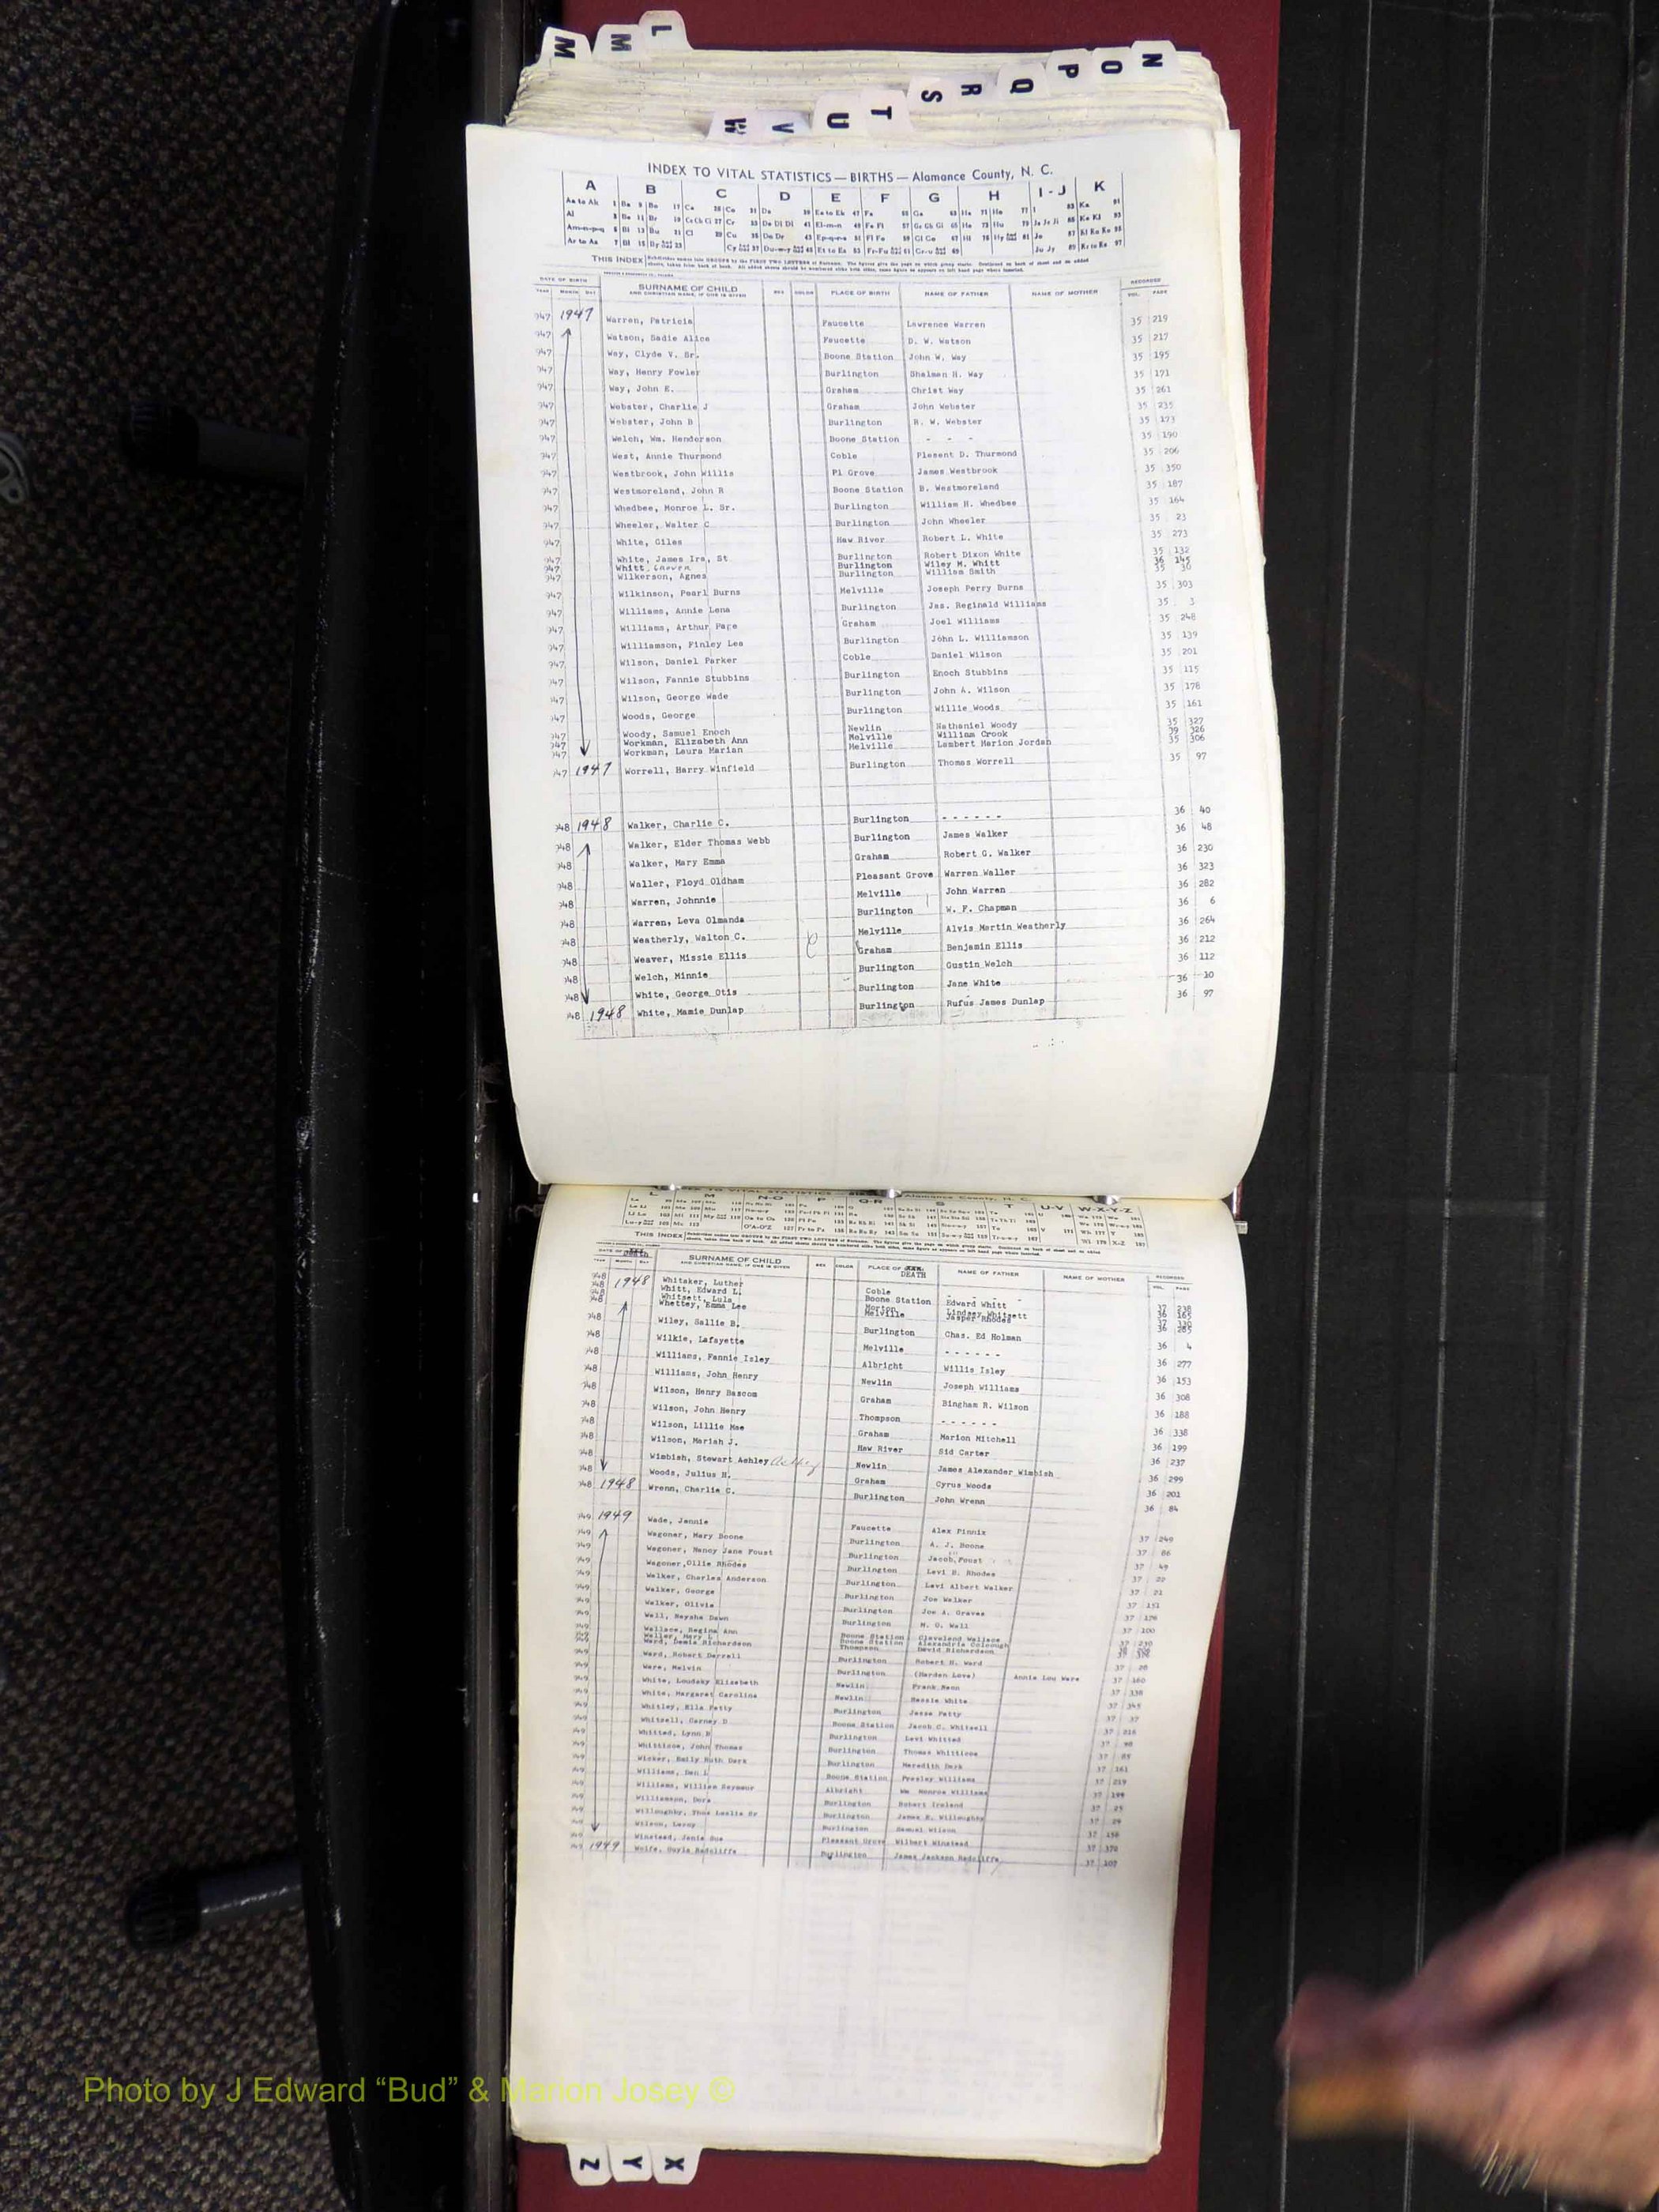 M M L
N O P Q R S T U V W
INDEX TO VITAL STATISTICS — BIRTHS — Alamance County, N. C.
A B C D E F G H I - J K
THIS INDEX
DATE OF BIRTH SURNAME OF CHILD SEX COLOR PLACE OF BIRTH NAME OF FATHER NAME OF MOTHER RECORDED
YEAR MONTH DAY AND CHRISTIAN NAME, IF ONE IS GIVEN VOL. PAGE
947 1947 Warren, Patricia Faucette Lawrence Warren 35 219
947 Watson, Sadie Alice Faucette D. W. Watson 35 217
947 Way, Clyde V. Sr. Boone Station John W. Way 35 195
947 Way, Henry Fowler Burlington Shelman H. Way 35 171
947 Way, John E. Graham Christ Way 35 261
947 Webster, Charlie J Graham John Webster 35 235
947 Webster, John B Burlington R. W. Webster 35 173
947 Welch, Wm. Henderson Boone Station - - - 35 190
947 West, Annie Thurmond Coble Plesent D. Thurmond 35 206
947 Westbrook, John Willis Pl Grove James Westbrook 35 350
947 Westmoreland, John R Boone Station B. Westmoreland 35 187
947 Whedbee, Monroe L. Sr. Burlington William H. Whedbee 35 164
947 Wheeler, Walter C Burlington John Wheeler 35 23
947 White, Giles Haw River Robert L. White 35 273
947 White, James Ira, St Burlington Robert Dixon White 35 132
947 Whitt, Grover Burlington Wiley M. Whitt 36 145
947 Wilkerson, Agnes Burlington William Smith 35 30
947 Wilkinson, Pearl Burns Melville Joseph Perry Burns 35 303
947 Williams, Annie Lena Burlington Jas. Reginald Williams 35 3
947 Williams, Arthur Page Graham Joel Williams 35 248
947 Williamson, Finley Lea Burlington John L. Williamson 35 139
947 Wilson, Daniel Parker Coble Daniel Wilson 35 201
947 Wilson, Fannie Stubbins Burlington Enoch Stubbins 35 115
947 Wilson, George Wade Burlington John A. Wilson 35 178
947 Woods, George Burlington Willie Woods 35 161
947 Woody, Samuel Enoch Newlin Nathaniel Woody 35 327
947 Workman, Elizabeth Ann Melville William Crook 39 326
947 Workman, Laura Marian Melville Lambert Marion Jordan 35 306
947 1947 Worrell, Harry Winfield Burlington Thomas Worrell 35 97
948 1948 Walker, Charlie C. Burlington - - - - - - 36 40
948 Walker, Elder Thomas Webb Burlington James Walker 36 48
948 Walker, Mary Emma Graham Robert G. Walker 36 230
948 Waller, Floyd Oldham Pleasant Grove Warren Waller 36 323
948 Warren, Johnnie Melville John Warren 36 282
948 Warren, Leva Olmanda Burlington W. F. Chapman 36 6
948 Weatherly, Walton C. Melville Alvis Martin Weatherly 36 264
948 Weaver, Missie Ellis Graham Benjamin Ellis 36 212
948 Welch, Minnie Burlington Gustin Welch 36 112
948 White, George Otis Burlington Jane White 36 10
948 1948 White, Mamie Dunlap Burlington Rufus James Dunlap 36 97
L M N-O P Q-R S T U-V W-X-Y-Z
THIS INDEX
DATE OF Death SURNAME OF CHILD SEX COLOR PLACE OF DEATH NAME OF FATHER NAME OF MOTHER RECORDED
YEAR MONTH DAY AND CHRISTIAN NAME, IF ONE IS GIVEN VOL. PAGE
948 1948 Whitaker, Luther Coble - - - 37 238
948 Whitt, Edward L. Boone Station Edward Whitt 36 165
948 Whitsett, Lula Morton Lindsey Whitsett 37 330
948 Whettey, Emma Lee Melville Jasper Rhodes 36 285
948 Wiley, Sallie B. Burlington Chas. Ed Holman 36 4
948 Wilkie, Lafayette Melville - - - - - - 36 277
948 Williams, Fannie Isley Albright Willis Isley 36 153
948 Williams, John Henry Newlin Joseph Williams 36 308
948 Wilson, Henry Bascom Graham Bingham R. Wilson 36 188
948 Wilson, John Henry Thompson - - - - - - 36 338
948 Wilson, Lillie Mae Graham Marion Mitchell 36 199
948 Wilson, Mariah J. Haw River Sid Carter 36 237
948 Wimbish, Stewart Ashley Ashley Newlin James Alexander Wimbish 36 299
948 Woods, Julius H. Graham Cyrus Woods 36 201
948 1948 Wrenn, Charlie C. Burlington John Wrenn 36 84
949 1949 Wade, Jennie Faucette Alex Pinnix 37 249
949 Wagoner, Mary Boone Burlington A. J. Boone 37 86
949 Wagoner, Nancy Jane Foust Burlington Jacob Foust 37 49
949 Wagoner, Ollie Rhodes Burlington Levi B. Rhodes 37 22
949 Walker, Charles Anderson Burlington Levi Albert Walker 37 21
949 Walker, George Burlington Joe Walker 37 151
949 Walker, Olivia Burlington Joe A. Graves 37 176
949 Wall, Neysha Dawn Burlington M. O. Wall 37 100
949 Wallace, Regina Ann Boone Station Cleveland Wallace 37 230
949 Waller, Mary L Boone Station Alexandria
949 Ward, Demis Richardson Thompson David Richardson 37
949 Ward, Robert Darrell Burlington Robert H. Ward 37 28
949 Ware, Melvin Burlington (Harden Love) Annie Lou Ware 37 160
949 White, Loudsky Elizabeth Newlin Frank Benn 37 338
949 White, Margaret Caroline Newlin Bessie White 37 345
949 Whitley, Ella Petty Burlington Jesse Petty 37 37
949 Whitsell, Carney D Boone Station Jacob C. Whitsell 37 216
949 Whitted, Lynn B Burlington Levi Whitted 37 98
949 Whitticoe, John Thomas Burlington Thomas Whitticoe 37 85
949 Wicker, Emily Ruth Dark Burlington Meredith Dark 37 161
949 Williams, Dan L Boone Station Presley Williams 37 219
949 Williams, William Seymour Albright Wm Monroe Williams 37 199
949 Williamson, Dora Burlington Robert Ireland 37 25
949 Willoughby, Thos Leslie Sr Burlington James E. Willoughby 37 29
949 Wilson, Leroy Burlington Samuel Wilson 37 158
949 Winstead, Jenie Sue Pleasant Grove Wilbert Winstead 37 370
949 1949 Wolfe, Gayle Radcliffe Burlington James Jackson Radcliffe 37 107
Photo by J Edward “Bud” & Marion Josey ©
Z Y X